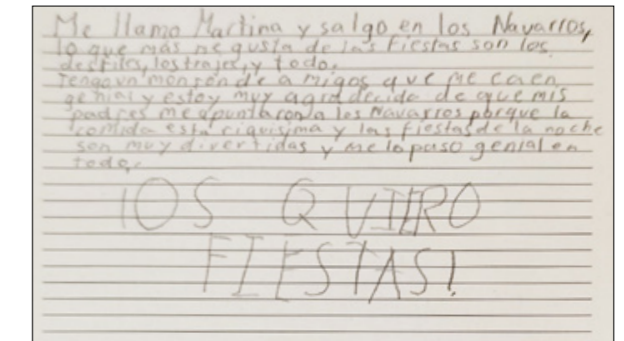 Me llamo Martina y salgo en los Navarros,
lo que más me gusta de las fiestas son los
desfiles, los trajes, y todo.
Tengo un montón de amigos que me caen
genial y estoy muy agradecida de que mis
padres me apuntaron a los Navarros porque la
comida esta riquísima y las fiestas de la noche
son muy divertidas y me lo paso genial en
todo.
¡OS QUIERO
FIESTAS!